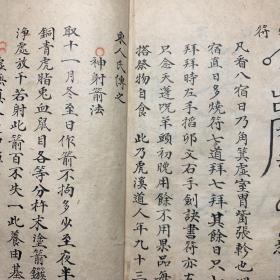 符
凡看八宿日乃角箕虛室胃觜張軫也
宿直日多燒符七道拜七拜其餘日只
拜拜時左手掐卯文右手劍訣書符亦
只念天蓬咒羊頭初晚用餘不用果品每
搭祭物自食 此乃虎溪道人年九十三
東人氏傳之
神射箭法
取十一月冬至日作箭不拘多少至夜半
銅青虎脂兎血鼠目各等分杵末塗箭鏃
淨處放千若射此箭百不失一此養由基